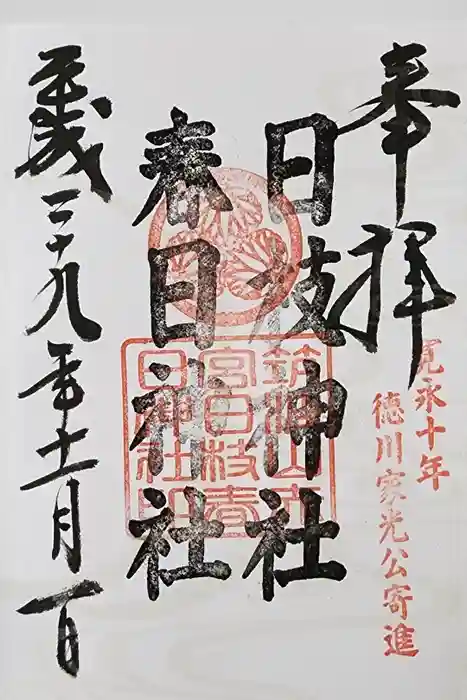 奉拝
寛永十年
徳川家光公寄進
日枝神社
春日神社
筑波山
宮日枝春
日神社印
平成二十九年十一月一日